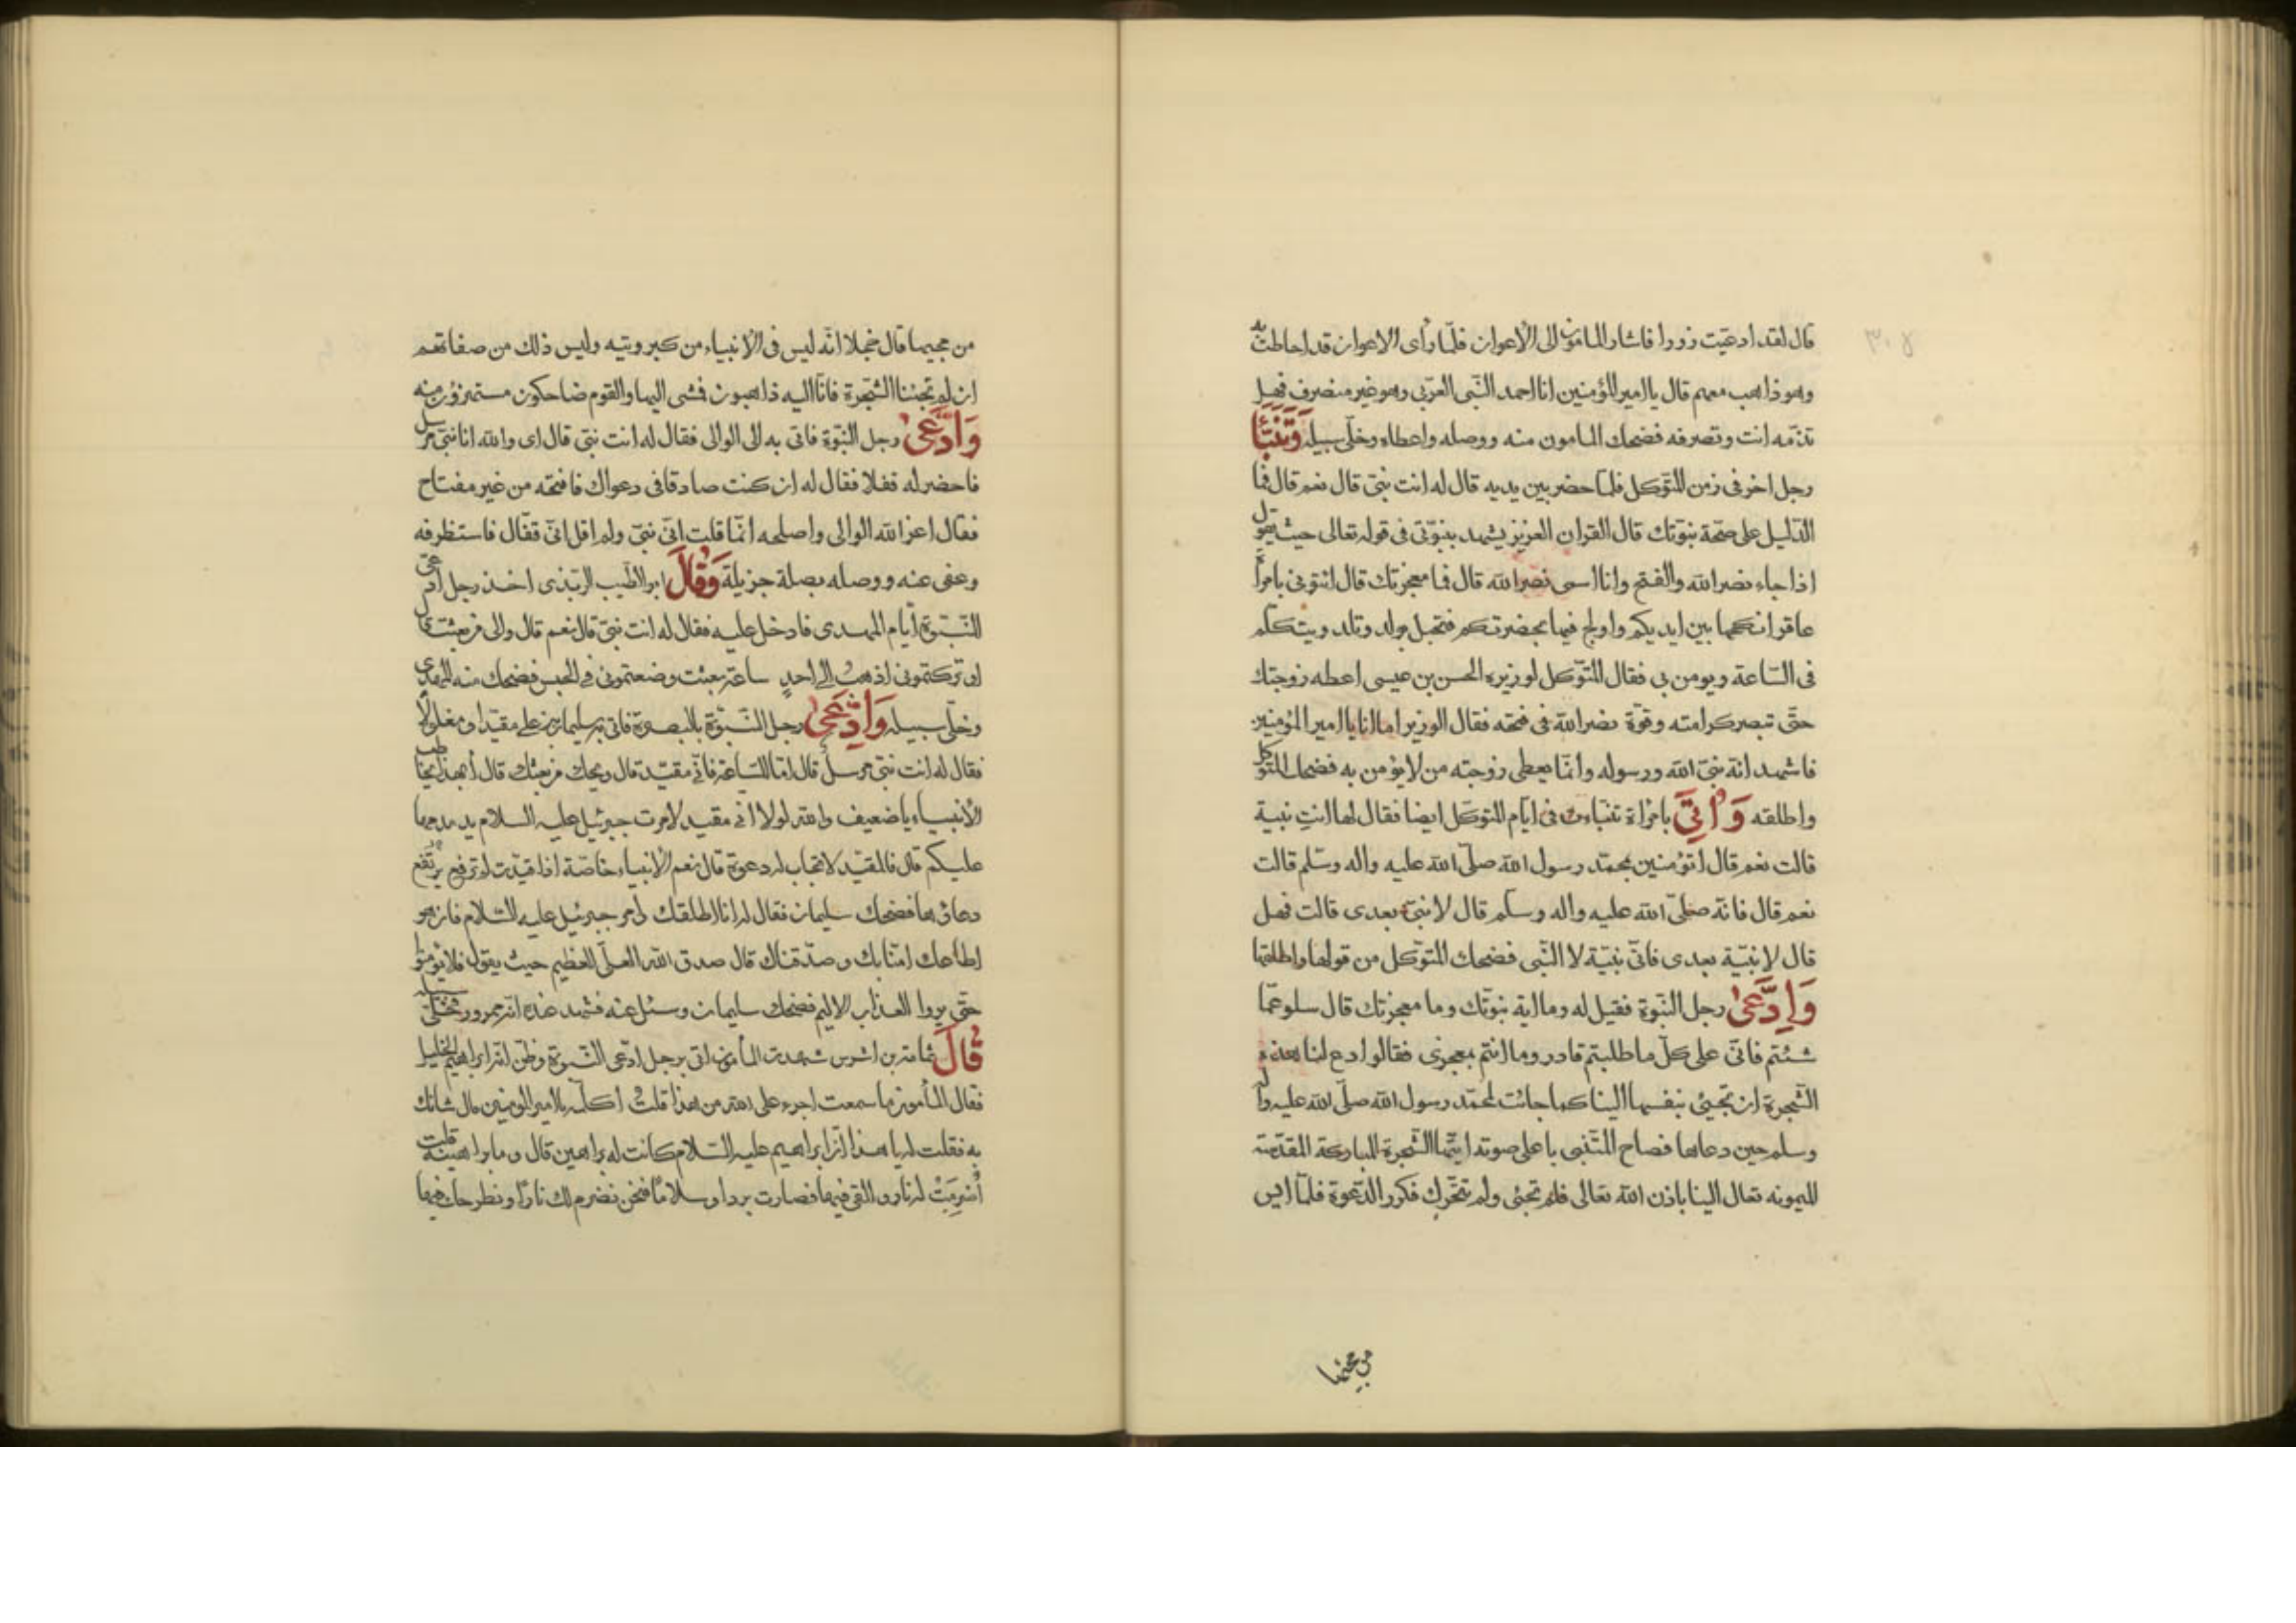 قال لقد ادعيت زورا فاشار المامون الى الاعوان فلمّا رأى الاعوان قد احاطت به
وهو ذاهب معهم قال يا امير المؤمنين انا احمد النّبى العربى وهو غير منصرف فهل
تذمّه انت وتصرفه فضحك المامون منه ووصله واعطاه وخلّى سبيله وَتَنَبَّأ
رجل اخر فى زمن المتوكّل فلمّا حضر بين يديه قال له انت نبىّ قال نعم قال فما
الدّليل على صحّة نبوّتك قال القران العزيز يشهد بنبوّتى فى قوله تعالى حيث يقول
اذا جاء نصر الله والفتح وانا اسمى نصر الله قال فما معجزتك قال ائتونى بامرأة
عاقر انكحها بين ايديكم واولج فيها بحضرتكم فتحبل بولد وتلد ويتكلّم
فى السّاعة ويومن بى فقال المتوّكل لوزيره الحسن بن عيسى اعطه زوجتك
حتّى تبصر كرامته وقوّة نصر الله فى فتحه فقال الوزير اما انا يا امير المؤمنين
فاشهد انّه نبىّ الله ورسوله وانّما يعطى زوجته من لا يؤمن به فضحك المتوكل
واطلقه وَاُتِىَ بامرأة تنبّاءت فى ايّام المتوكّل ايضا فقال لها انتِ نبية
قالت نعم قال اتؤمنين بمحمّد رسول الله صلّى الله عليه واله وسلّم قالت
نعم قال فانّه صلّى الله عليه واله وسلّم قال لا نبىّ بعدى قالت فهل
قال لا نبيّة بعدى فانّى نبيّة لا النّبى فضحك المتوّكل من قولها واطلقها
وَادَّعىٰ رجل النّبوّة فقيل له وما اية نبوّتك وما معجزتك قال سلو عمّا
شئتم فانّى على كلّ ما طلبتم قادر وما انتم بمعجزى فقالوا ادع لنا هذه
الشّجرة ان تجيئ بنفسها الينا كما جائت لمحمّد رسول الله صلّى الله عليه واله
وسلم حين دعاها فصاح المتنبى باعلى صوته ايّتها الشّجرة المباركة المقدّسة
الميمونه تعال الينا باذن الله تعالى فلم تجئى ولم تتحّرك فكرر الدّعوة فلمّا ايس
من مجيها
من مجيها قال خجلا انّه ليس فى الانبياء من كبر وتيه وليس ذلك من صفاتهم
ان لم تجئنا الشّجرة فانّا اليه ذاهبون فمشى اليها والقوم ضاحكون مستهزؤن منه
وَادَّعىٰ رجل النبّوة فاتى به الى الوالى فقال له انت نبى قال اى والله انا نبىّ مرسل
فاحضر له قفلا فقال له ان كنت صادقا فى دعواك فافتحه من غير مفتاح
فقال اعز الله الوالى واصلحه انّما قلت انّى نبىّ ولم اقل انّى قفّال فاستظرفه
وعفى عنه ووصله بصلة جزيلة وَقَالَ ابو الطّيب الربذى اخذ رجل ادّعى
النّبوّة ايّام المهدى فادخل عليه فقال له انت نبىّ قال نعم قال والى من بعثت قال
او تركتمونى اذهب الى احدٍ ساعة بعثت وضعتمونى فى الحبس فضحك منه المهدى
وخلّى سبيله وَادَّعىٰ رجل النّبوّة بالبصرة فاتى به سليمان بن على مقيّدا ومغلولاً
فقال له انت نبىّ مرسل قال امّا السّاعة فانّى مقيّد قال ويحك من بعثك قال أبهذا يخاطب
الأنبياء يا ضعيف والله لولا انى مقيد لامرت جبرئيل عليه السلام يدمدمها
عليكم قال فالمقيّد لا تجاب له دعوة قال نعم الأنبياء خاصّة اذا قيّدت لم ترفع يرتفع
دعائها فضحك سليمان فقال له انا اطلقك وامر جبرئيل عليه السّلام فان هو
اطاعك امنّا بك وصدّقناك قال صدق الله العلّى العظيم حيث يقول فلا يؤمنوا
حتّى يروا العذاب الاليم فضحك سليمان وسئل عنه فشهد عنده انّه ممرور فخلّى سبيله
قَالَ ثمامة بن اشرس شهدت المأمون اتى برجل ادّعى النّبوة وظنّ انّه ابراهيم الخليل
فقال المأمون ما سمعت اجرء على الله من هذا قلت اكلّمه يا امير المومنين قال شانك
به فقلت له يا هذا انّ ابراهيم عليه السّلام كانت له براهين قال وما براهينه قلت
أُضرِمَتْ له نار والقى فيها فصارت بردا وسلامًا فنحن نضرم لك نارًا ونطرحك فيها